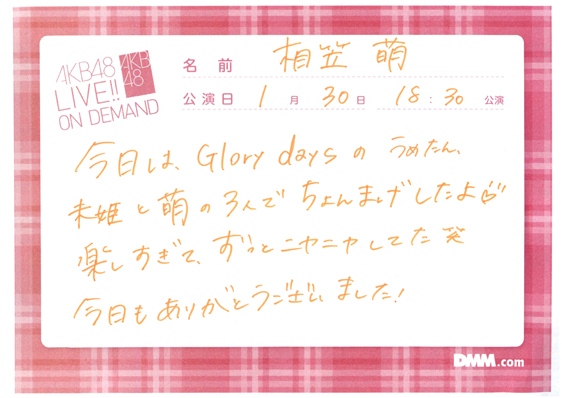 AKB48
LIVE!!
ON DEMAND
AKB
48
名前 相笠 萌
公演日 1月 30日 18:30 公演
今日は、Glory daysの うめたん、
未姫と萌の3人で ちょんまげしたよ
楽しすぎて、ずっとニヤニヤしてた 笑
今日もありがとうございました!
DMM.com